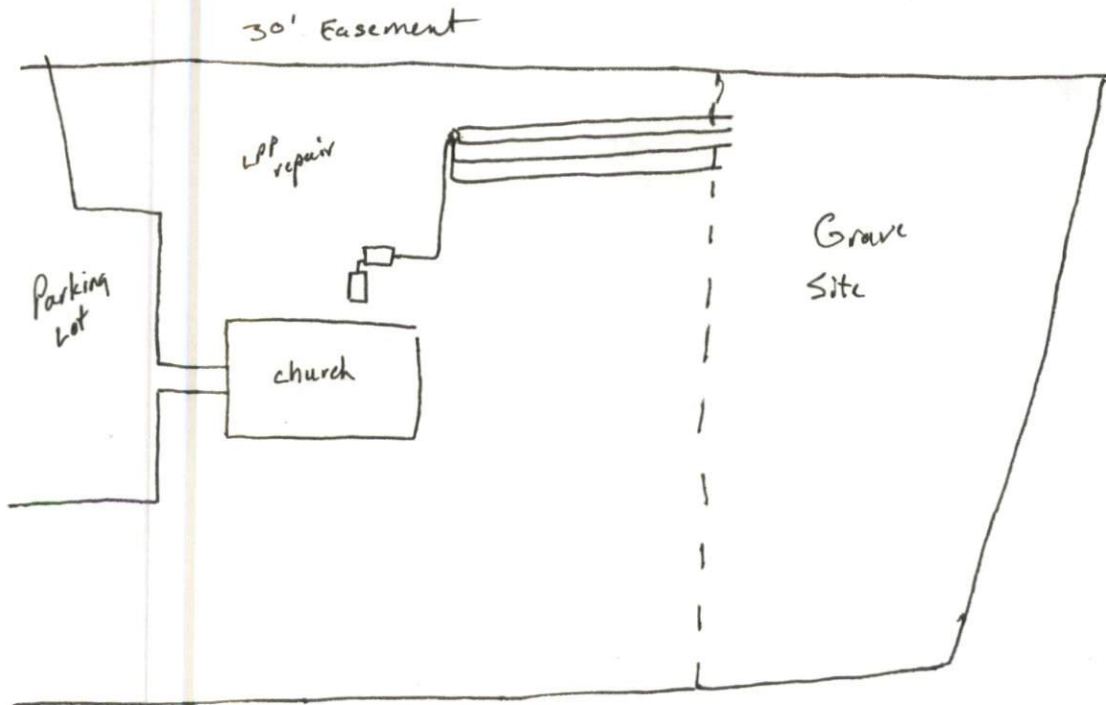 30' Easement
LPP
repair
Parking
Lot
church
Grave
Site